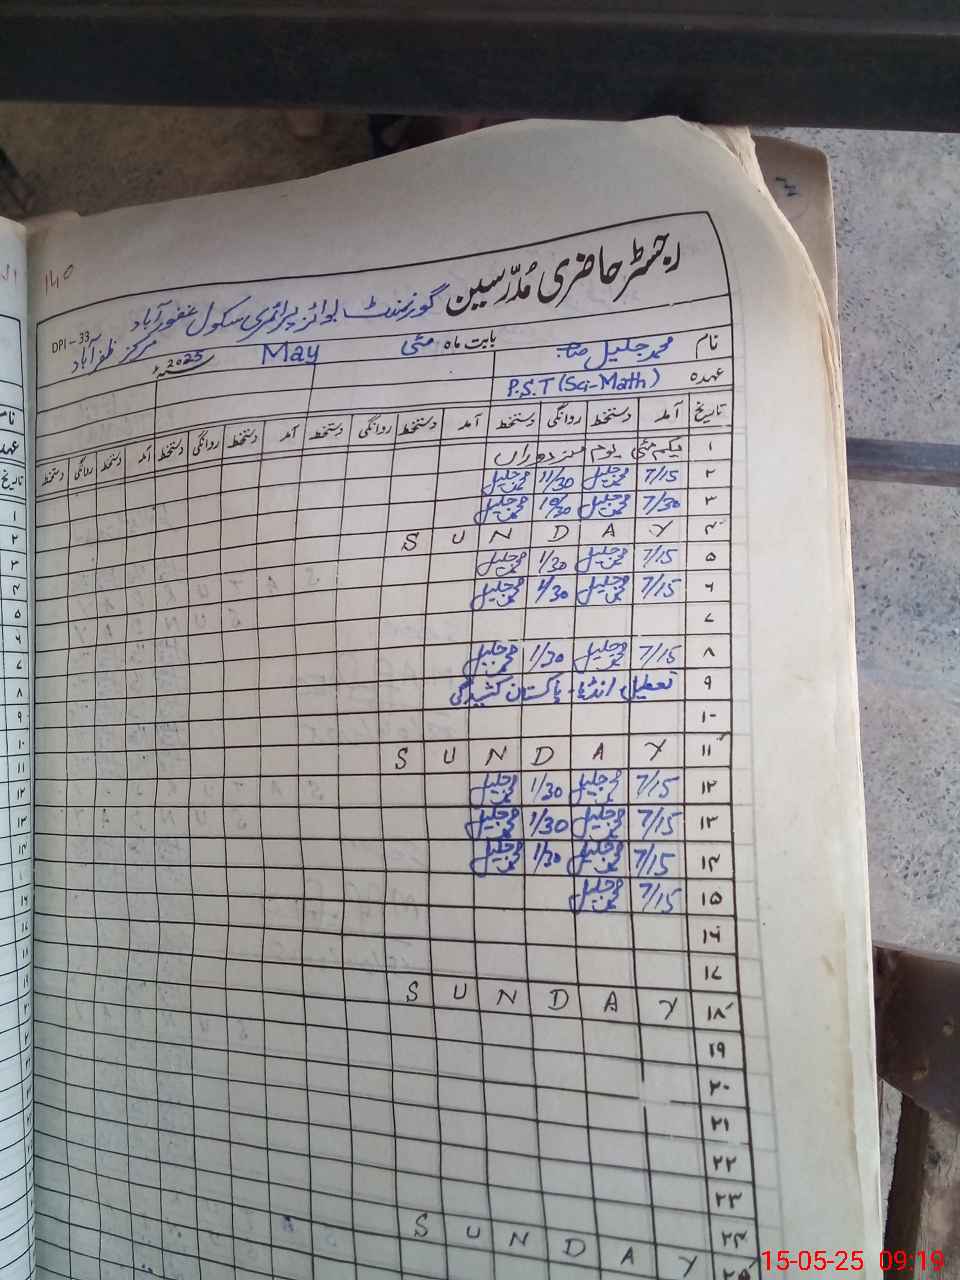 140
رجسٹر حاضری مدرسین گورنمنٹ بوائز پرائمری سکول غفورآباد
DPI-33
مرکز ظفرآباد
نام محمد جلیل بابت ماہ مئی May 2025
عہدہ P.S.T (Sci-Math)
تاریخ آمد دستخط روانگی دستخط آمد دستخط روانگی دستخط آمد دستخط روانگی دستخط آمد دستخط روانگی دستخط
۱ یکم مئی یوم مزدوراں
۲ 7/15 محمد جلیل 11/30 محمد جلیل
۳ 7/30 محمد جلیل 10/30 محمد جلیل
۴ S U N D A Y
۵ 7/15 محمد جلیل 1/30 محمد جلیل
۶ 7/15 محمد جلیل 1/30 محمد جلیل
۷
۸ 7/15 محمد جلیل 1/30 محمد جلیل
۹ تعطیل انڈیا - پاکستان کشیدگی
۱۰
۱۱ S U N D A Y
۱۲ 7/15 محمد جلیل 1/30 محمد جلیل
۱۳ 7/15 محمد جلیل 1/30 محمد جلیل
۱۴ 7/15 محمد جلیل 1/30 محمد جلیل
۱۵ 7/15 محمد جلیل
۱۶
۱۷
۱۸ S U N D A Y
۱۹
۲۰
۲۱
۲۲
۲۳
۲۴ S U N D A Y
۲۵
نام
عہدہ
تاریخ
۱
۲
۳
۴
۵
۶
۷
۸
۹
۱۰
۱۱
۱۲
۱۳
۱۴
15-05-25 09:19